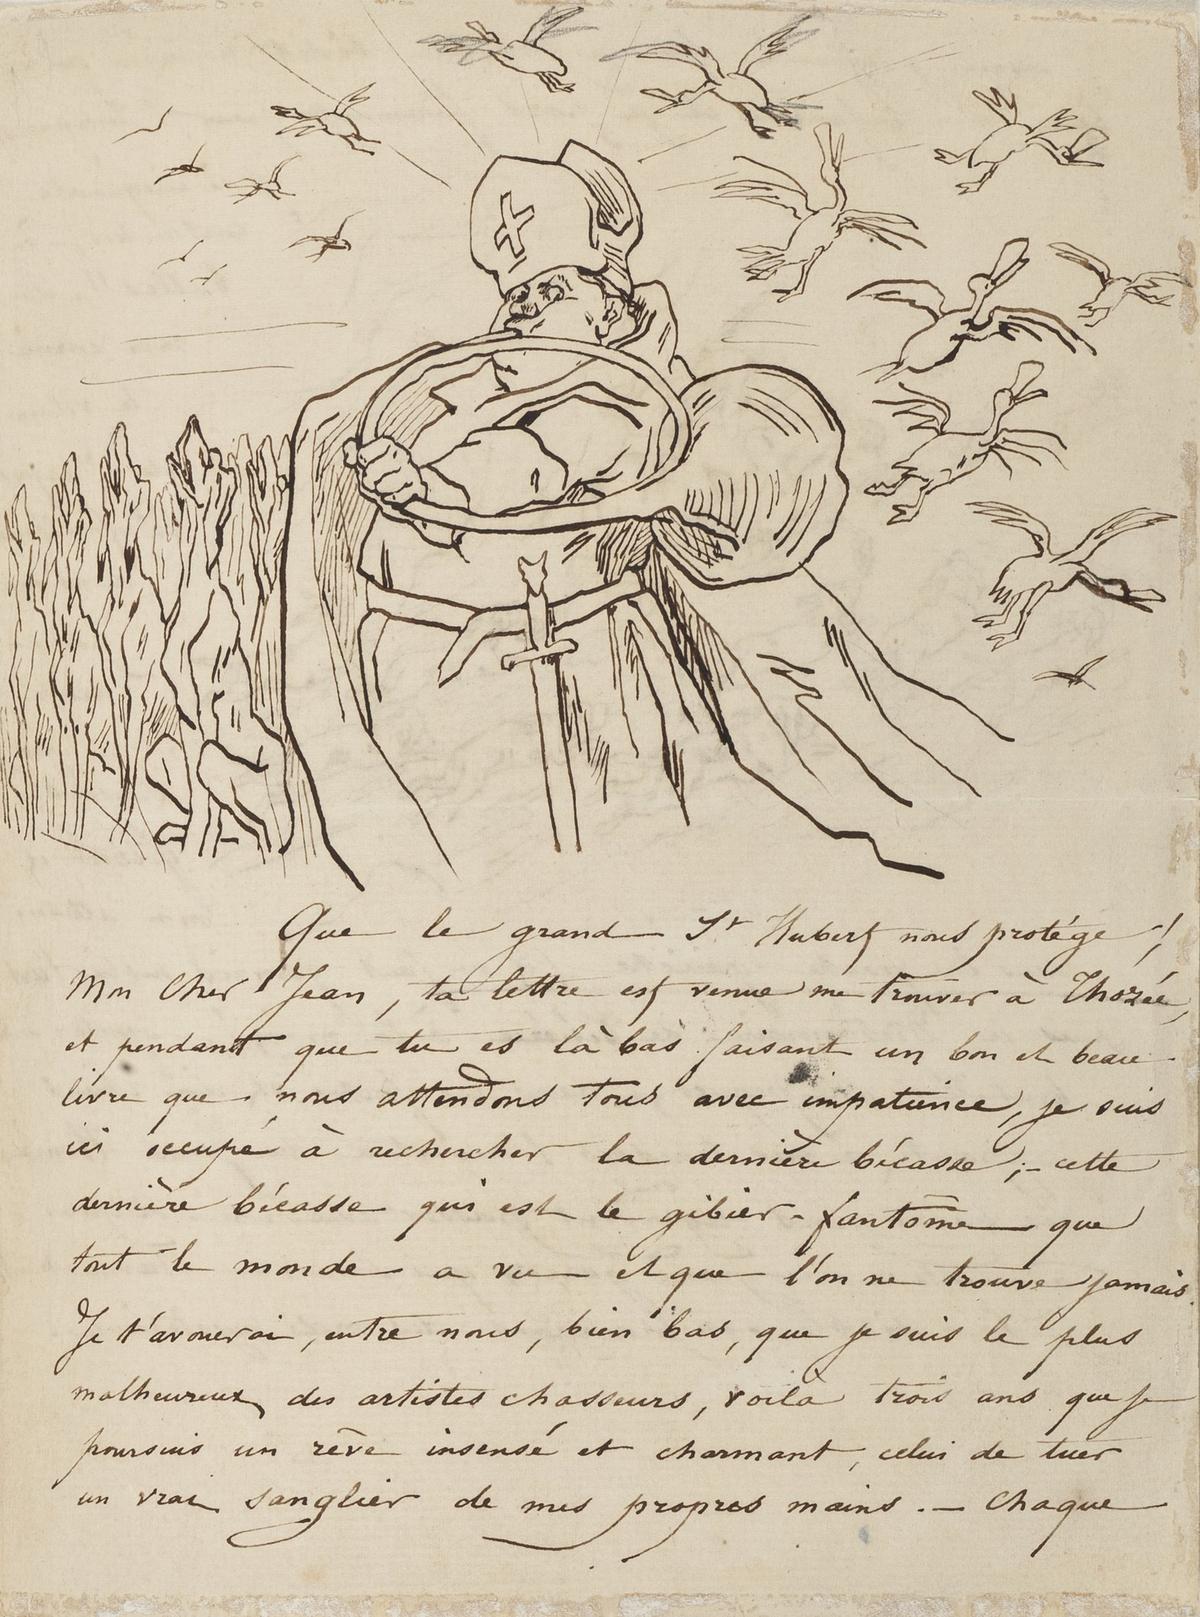 Que le grand St Hubert nous protége !
Mon Cher Jean, ta lettre est venue me trouver à Thozée,
et pendant que tu es là bas faisant un bon et beau
livre que nous attendons tous avec impatience, je suis
ici occupé à rechercher la dernière bécasse ;- cette
dernière bécasse qui est le gibier-fantôme que
tout le monde a vu et que l'on ne trouve jamais.
Je t'avouerai, entre nous, bien bas, que je suis le plus
malheureux des artistes chasseurs, voilà trois ans que je
poursuis un rêve insensé et charmant, celui de tuer
un vrai sanglier de mes propres mains. — Chaque